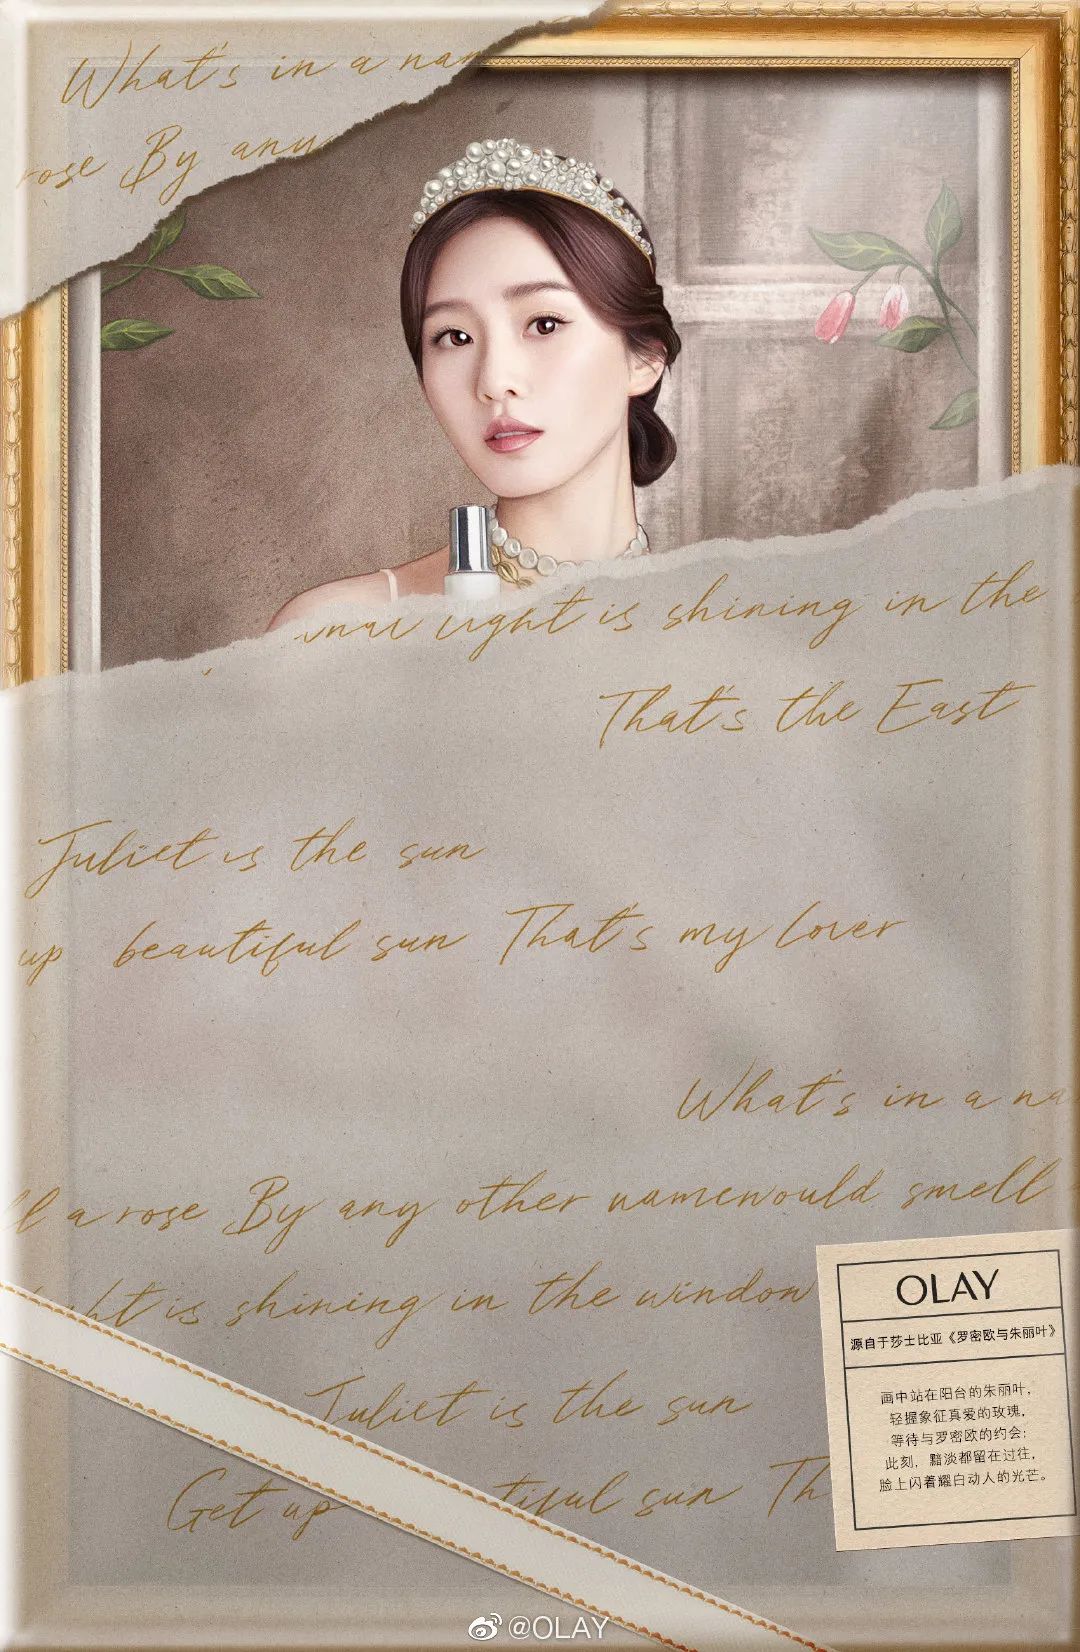 What's in a
rose By any
light is shining in the
That's the East
Juliet is the sun
up beautiful sun That's my lover
What's in a
a rose By any other namewould smell
is shining in the window
Juliet is the sun
Get up sun
OLAY
源自于莎士比亚《罗密欧与朱丽叶》
画中站在阳台的朱丽叶，
轻握象征真爱的玫瑰，
等待与罗密欧的约会；
此刻，黯淡都留在过往，
脸上闪着耀白动人的光芒。
@OLAY